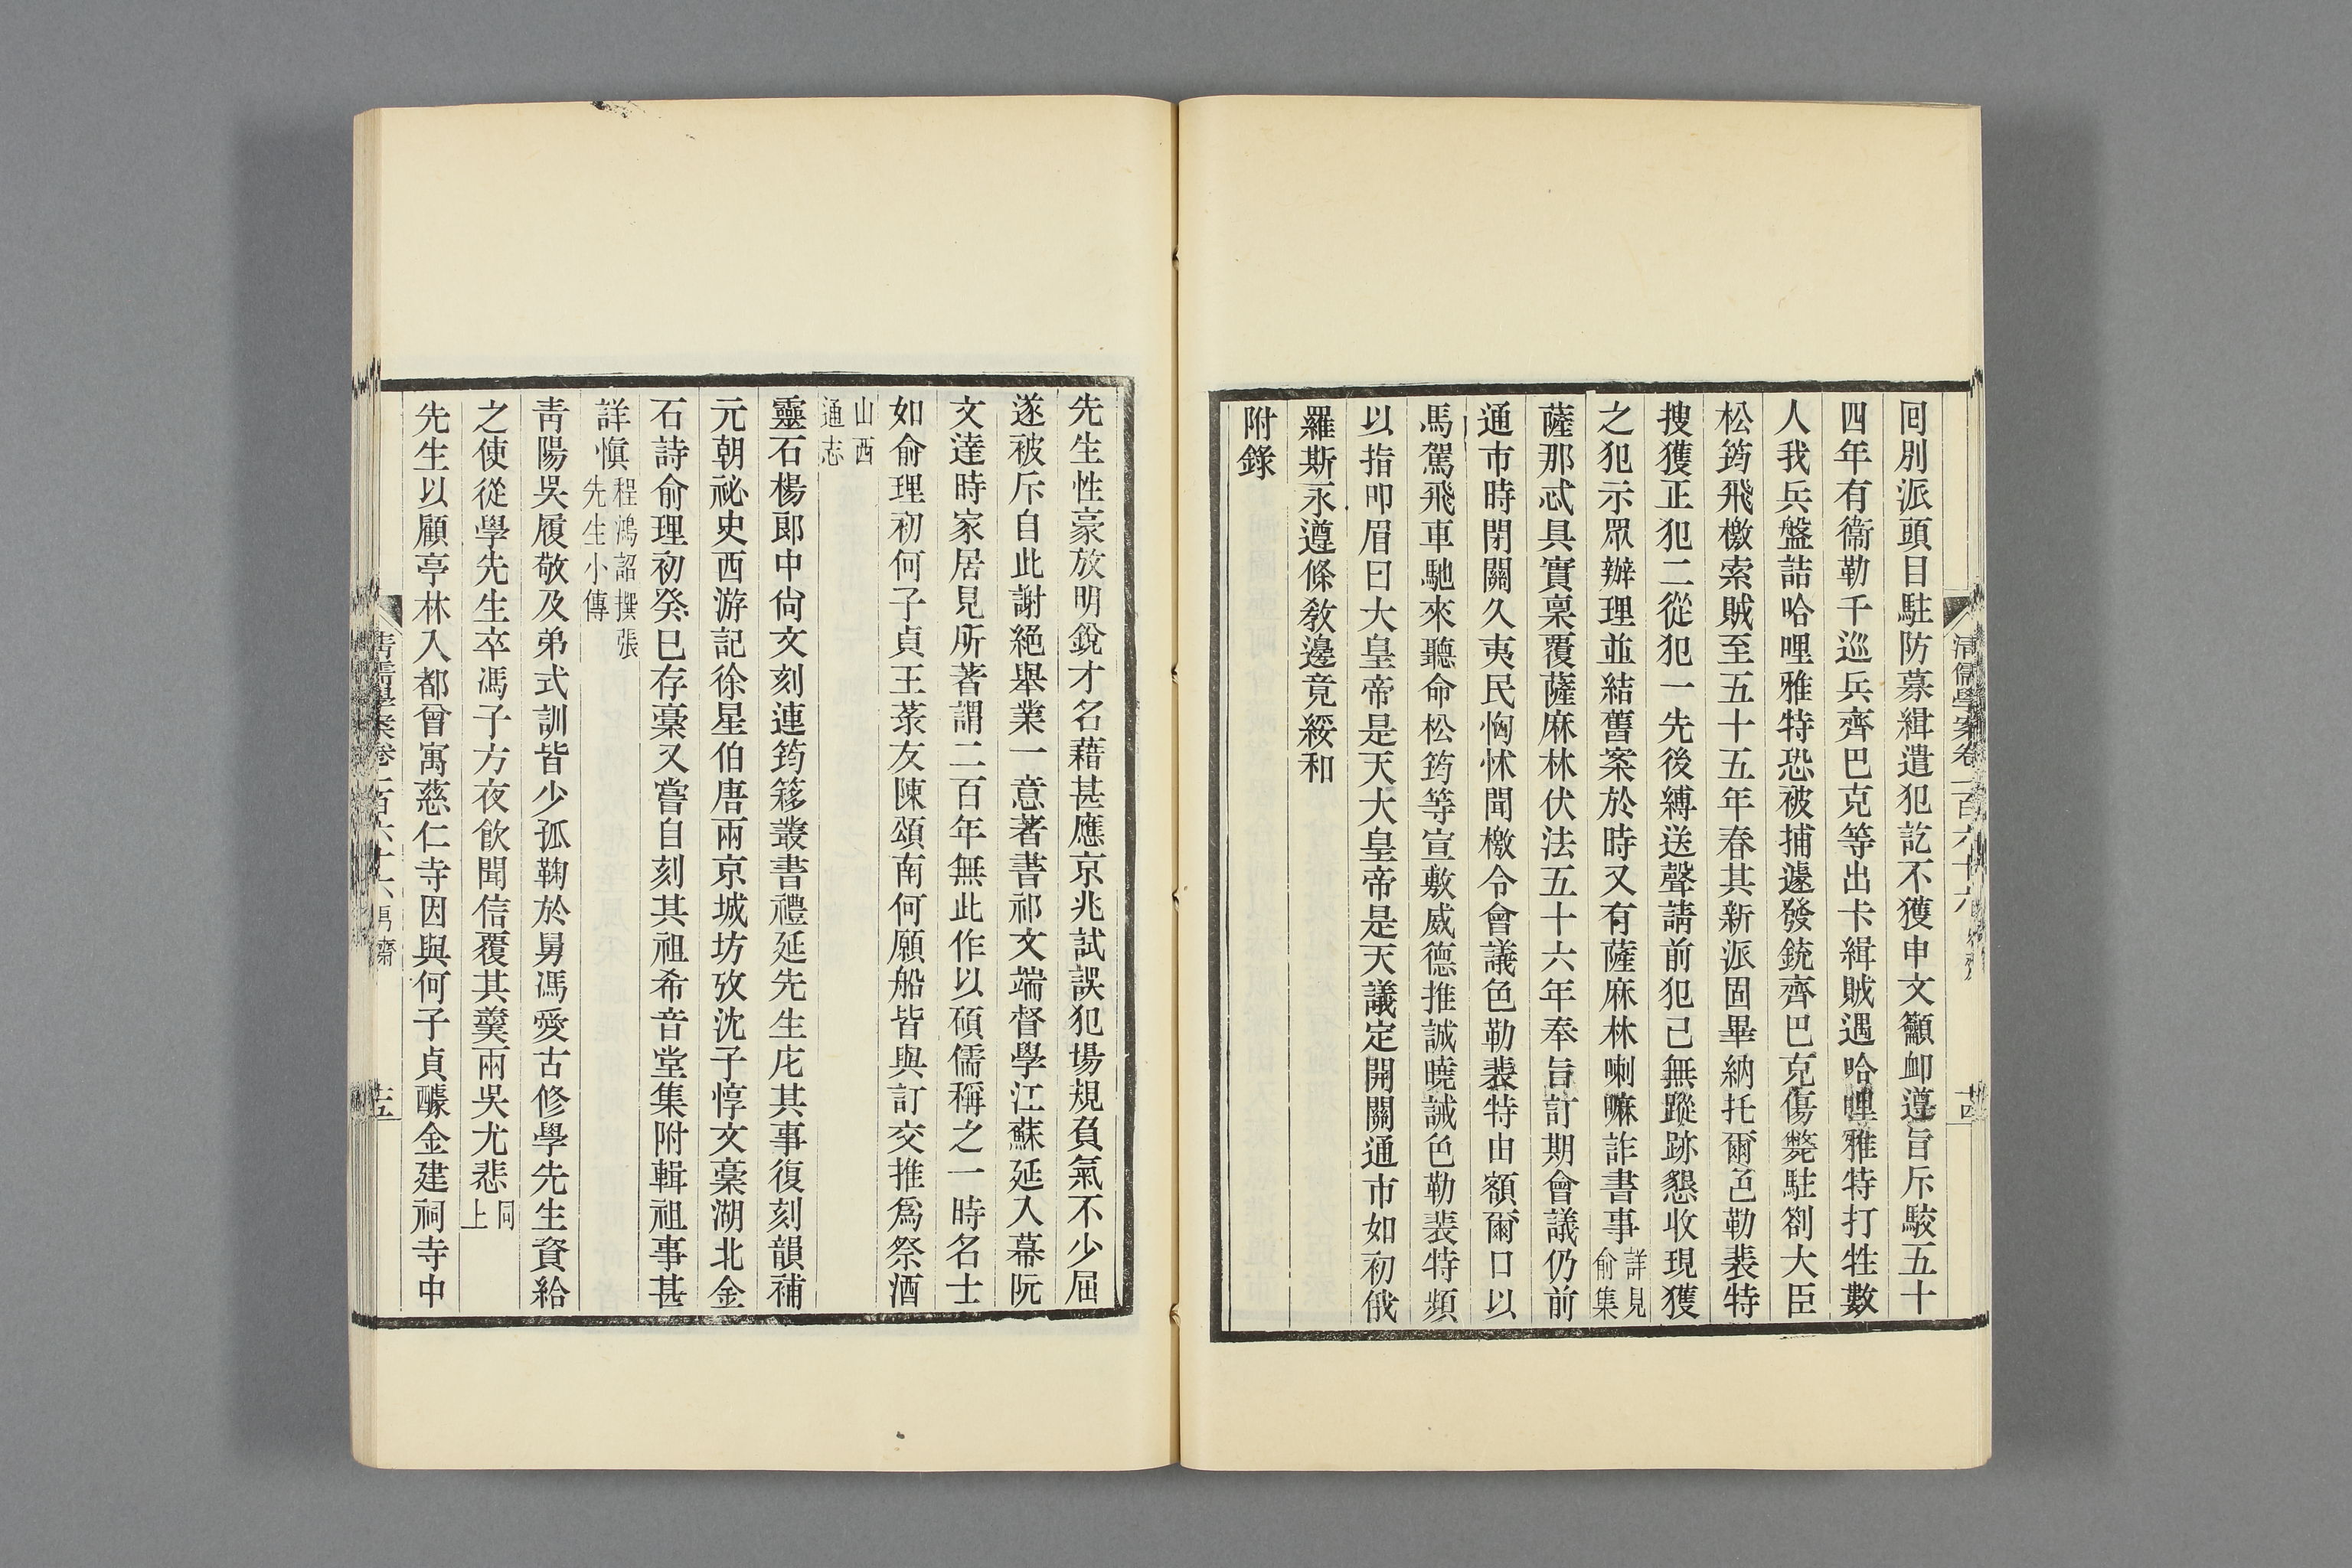 清儒學案卷一百六十六
十四
囘別派頭目駐防募緝遣犯訖不獲申文籲卹遵旨斥駮五十
四年有衞勒千巡兵齊巴克等出卡緝賊遇哈哩雅特打牲數
人我兵盤詰哈哩雅特恐被捕遽發銃齊巴克傷斃駐劄大臣
松筠飛檄索賊至五十五年春其新派固畢納托爾色勒裴特
搜獲正犯二從犯一先後縛送聲請前犯已無蹤跡懇收現獲
之犯示眾辦理並結舊案於時又有薩麻林喇嘛詐書事詳見俞集
薩那忒具實稟覆薩麻林伏法五十六年奉旨訂期會議仍前
通市時閉關久夷民恟怵聞檄令會議色勒裴特由額爾口以
馬駕飛車馳來聽命松筠等宣敷威德推誠曉誡色勒裴特頻
以指叩眉曰大皇帝是天大皇帝是天議定開關通市如初俄
羅斯永遵條敎邊竟綏和
附錄
先生性豪放明銳才名藉甚應京兆試誤犯場規負氣不少屈
遂被斥自此謝絕舉業一意著書祁文端督學江蘇延入幕阮
文達時家居見所著謂二百年無此作以碩儒稱之一時名士
如俞理初何子貞王菉友陳頌南何願船皆與訂交推爲祭酒
山西通志
靈石楊郎中尙文刻連筠簃叢書禮延先生庀其事復刻韻補
元朝祕史西游記徐星伯唐兩京城坊攷沈子惇文稾湖北金
石詩俞理初癸巳存稾又嘗自刻其祖希音堂集附輯祖事甚
詳愼程鴻詔撰張先生小傳
靑陽吳履敬及弟式訓皆少孤鞠於舅馮愛古修學先生資給
之使從學先生卒馮子方夜飮聞信覆其羹兩吳尤悲同上
先生以顧亭林入都曾寓慈仁寺因與何子貞醵金建祠寺中
清儒學案卷一百六十六
十五